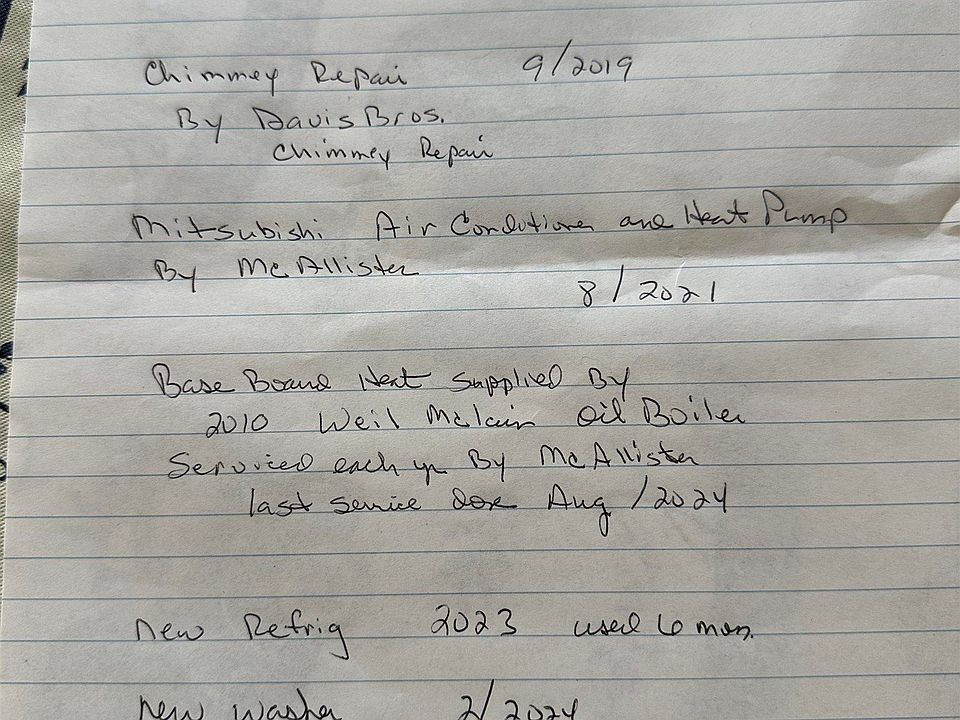 Chimmey Repair 9/2019
By Davis Bros.
Chimmey Repair
Mitsubishi Air Conditioner and Heat Pump
By McAllister
8/2021
Base Board Heat supplied By
2010 Weil Mclain Oil Boiler
Serviced each yr By McAllister
last service Aug /2024
New Refrig 2023 used 6 mon.
New Washer 2/2024